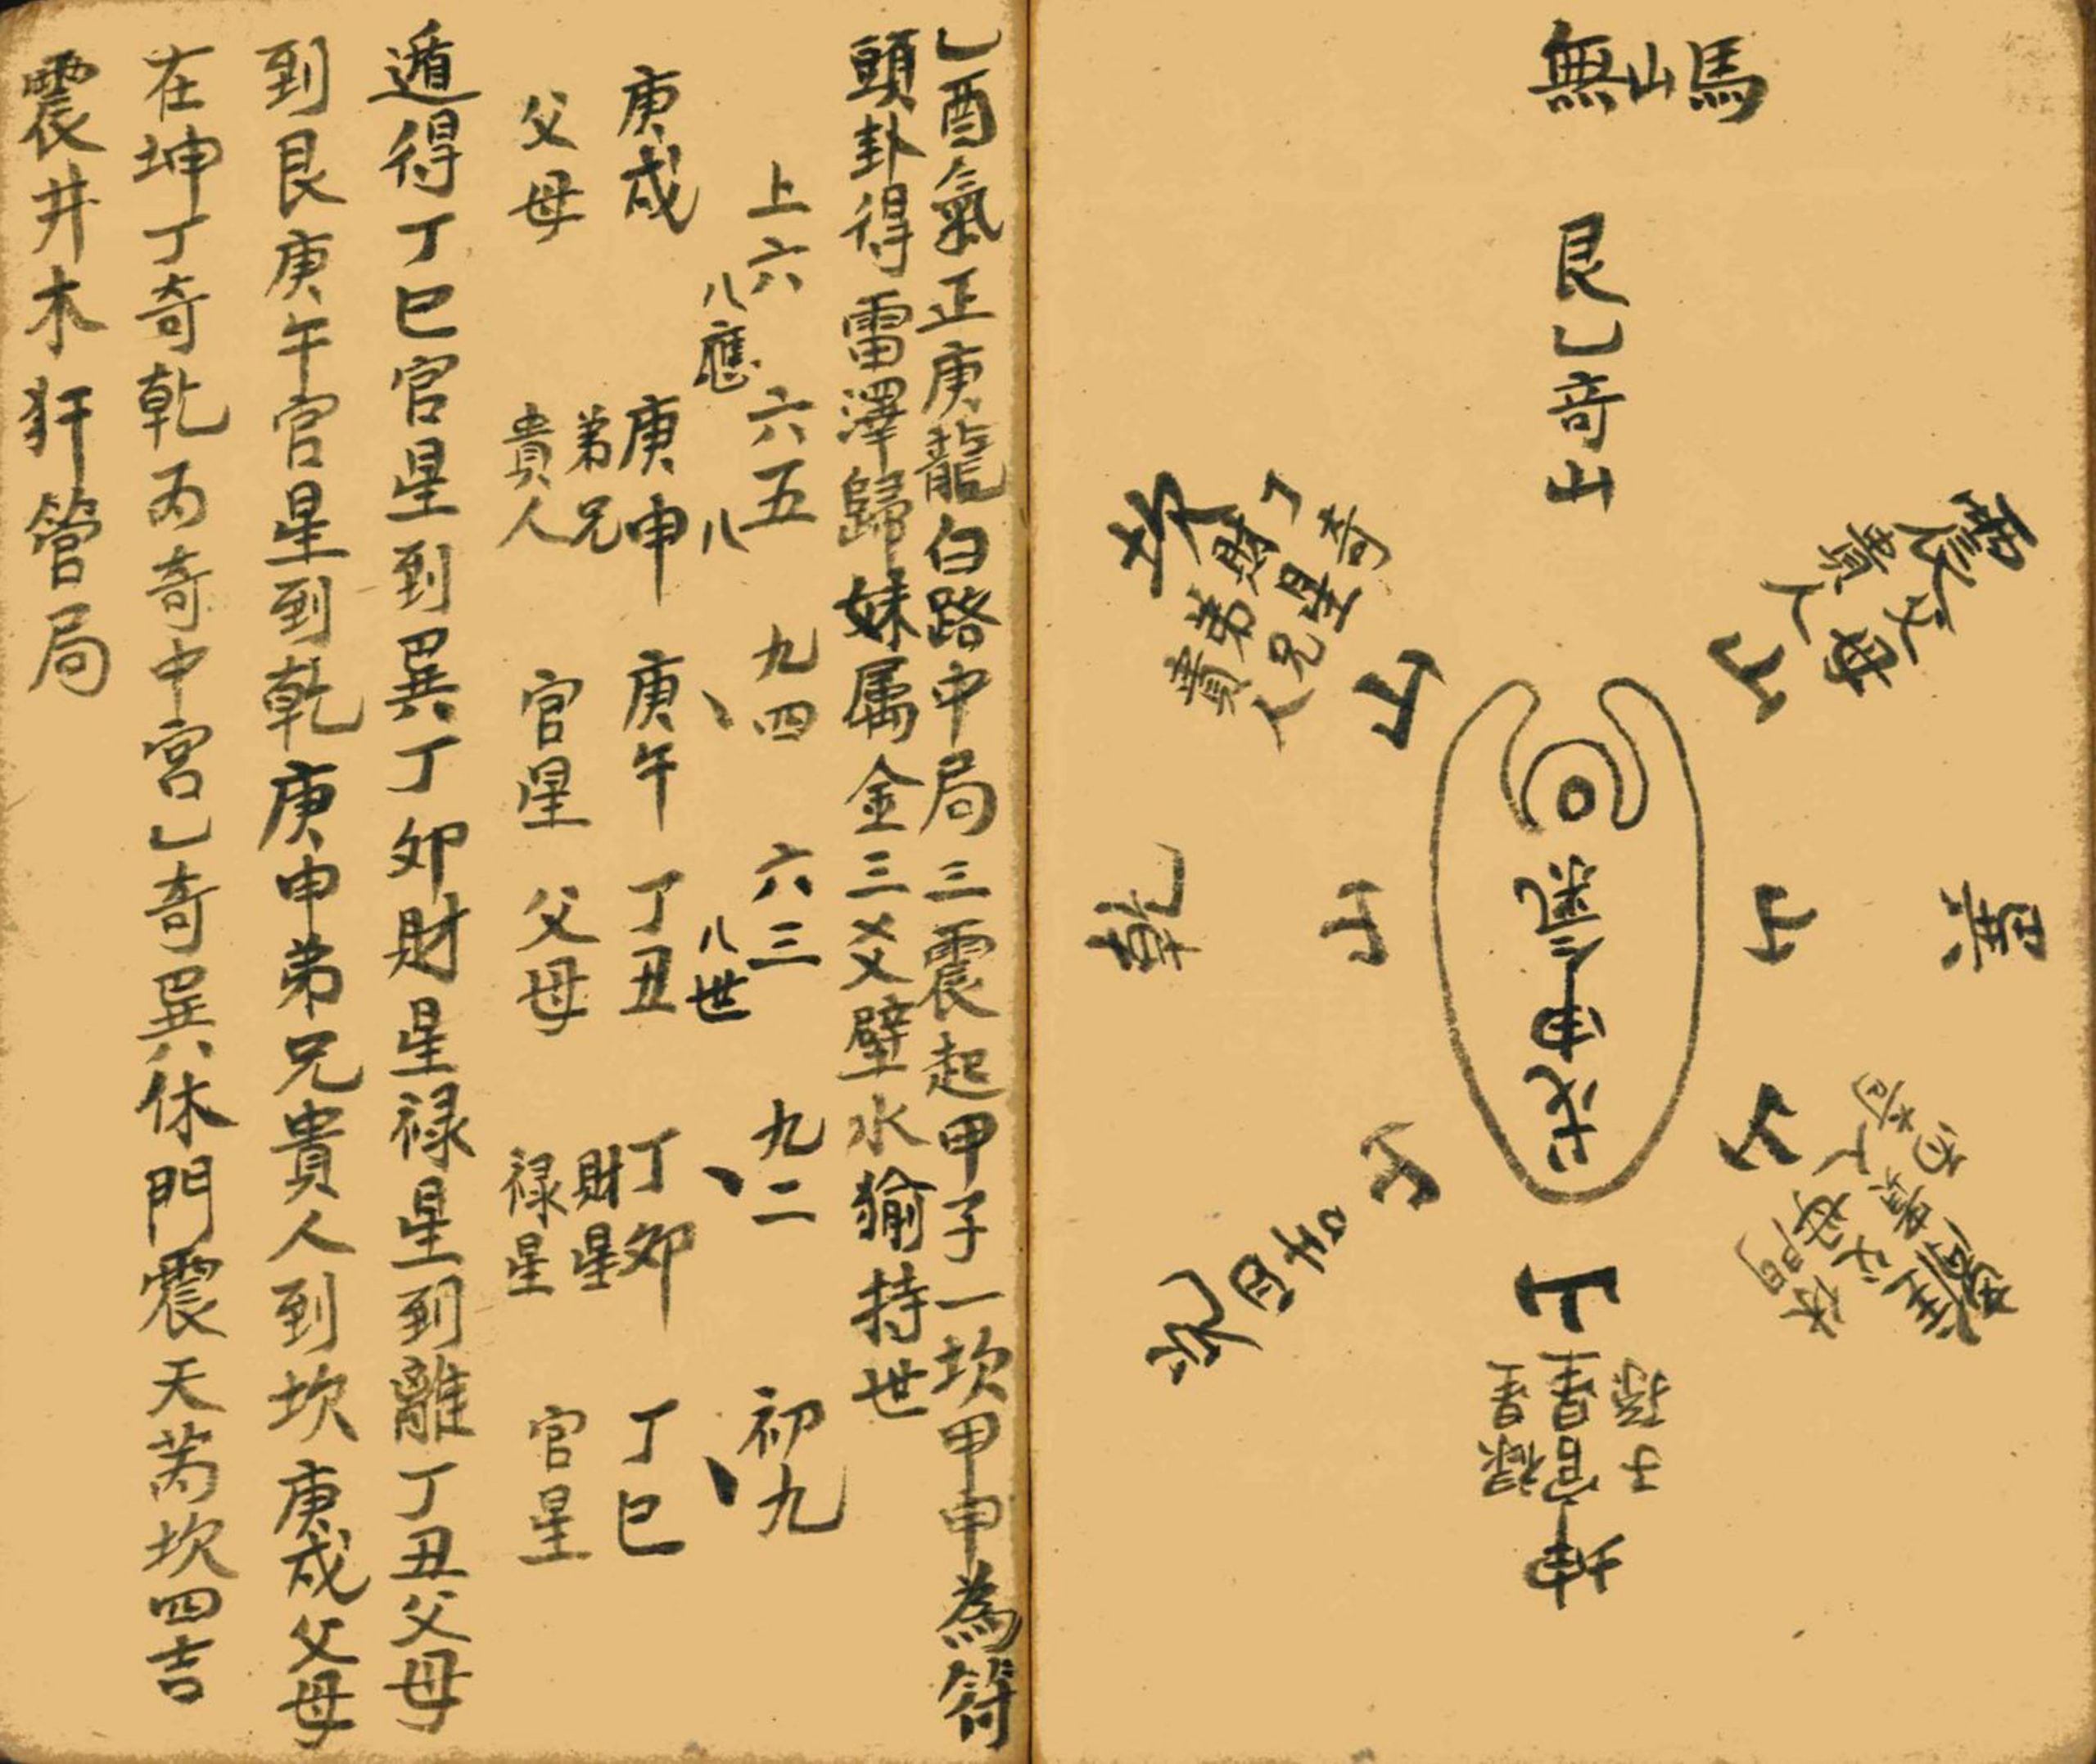 無山馬
艮乚奇山
震貴人父母山
巽山
山
山官星禄星子孫
坤
吉四山
乾山
丁奇財星弟兄貴人山
戊申氣
乚酉氣正庚龍白路中局三震起甲子一坎甲申為符
頭卦得雷澤歸妹属金三爻壁水㺄持世
上六 六五 九四 六三 九二 初九
八應 八 、 八世 、 、
庚戌 庚申 庚午 丁丑 丁卯 丁巳
父母 弟兄貴人 官星 父母 財星禄星 官星
遁得丁巳官星到巽丁卯財星禄星到離丁丑父母
到艮庚午官星到乾庚申弟兄貴人到坎庚戌父母
在坤丁奇乾丙奇中宮乚奇巽休門震天芮坎四吉
震井木犴管局